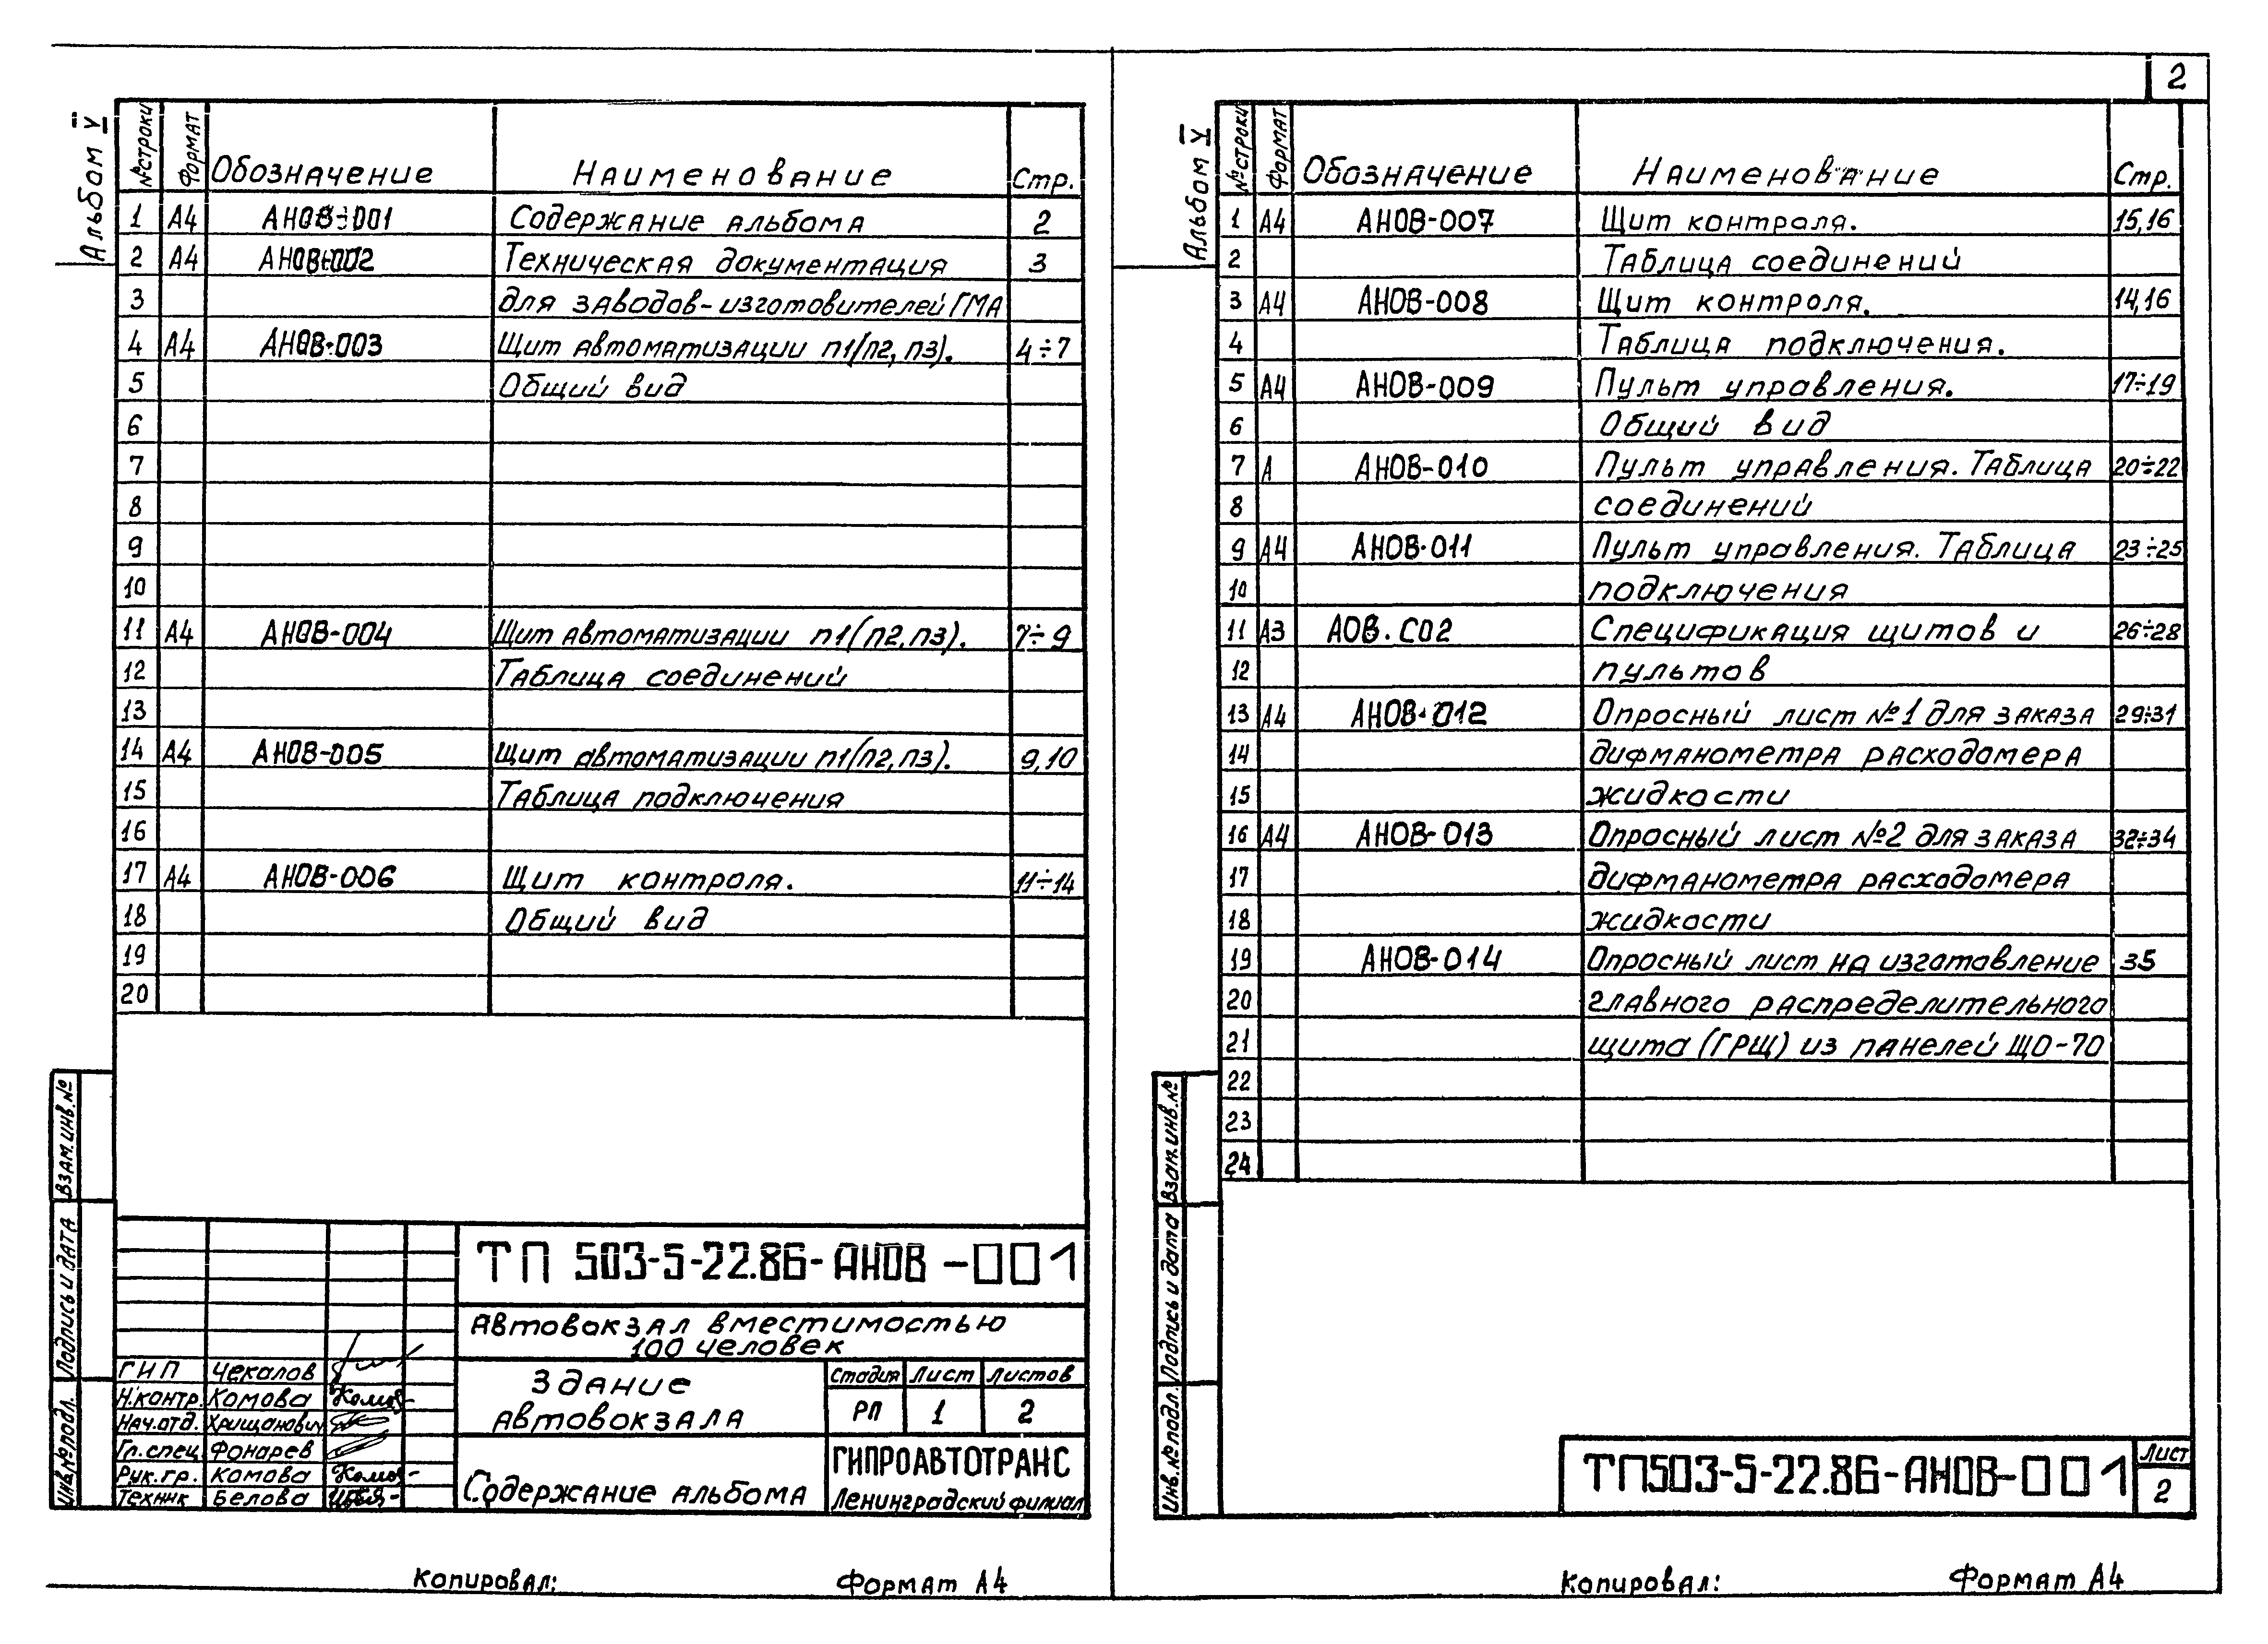 2
Альбом V
№ строки Формат Обозначение Наименование Стр.
1 А4 АНОВ-001 Содержание альбома 2
2 А4 АНОВ-002 Техническая документация 3
3 для заводов-изготовителей ГМА
4 А4 АНОВ-003 Щит автоматизации П1(П2, П3). 4÷7
5 Общий вид
6
7
8
9
10
11 А4 АНОВ-004 Щит автоматизации П1(П2,П3). 7÷9
12 Таблица соединений
13
14 А4 АНОВ-005 Щит автоматизации П1(П2,П3). 9,10
15 Таблица подключения
16
17 А4 АНОВ-006 Щит контроля. 11÷14
18 Общий вид
19
20
Взам.инв.№
Подпись и дата
Инв.№подл.
ТП 503-5-22.86-АНОВ-001
Автовокзал вместимостью
100 человек
ГИП Чекалов
Н.контр. Комова
Нач.отд. Хрищанович
Гл.спец. Фонарев
Рук.гр. Комова
Техник Белова
Здание
автовокзала
Стадия Лист Листов
РП 1 2
Содержание альбома
ГИПРОАВТОТРАНС
Ленинградский филиал
Копировал: Формат А4
Альбом V
№ строки Формат Обозначение Наименование Стр.
1 А4 АНОВ-007 Щит контроля. 15,16
2 Таблица соединений
3 А4 АНОВ-008 Щит контроля. 14,16
4 Таблица подключения.
5 А4 АНОВ-009 Пульт управления. 17÷19
6 Общий вид
7 А АНОВ-010 Пульт управления. Таблица 20÷22
8 соединений
9 А4 АНОВ-011 Пульт управления. Таблица 23÷25
10 подключения
11 А3 АОВ.С02 Спецификация щитов и 26÷28
12 пультов
13 А4 АНОВ-012 Опросный лист №1 для заказа 29÷31
14 дифманометра расходомера
15 жидкости
16 А4 АНОВ-013 Опросный лист №2 для заказа 32÷34
17 дифманометра расходомера
18 жидкости
19 АНОВ-014 Опросный лист на изготовление 35
20 главного распределительного
21 щита (ГРЩ) из панелей ЩО-70
22
23
24
Взам.инв.№
Подпись и дата
Инв.№подл.
ТП503-5-22.86-АНОВ-001
Лист
2
Копировал: Формат А4